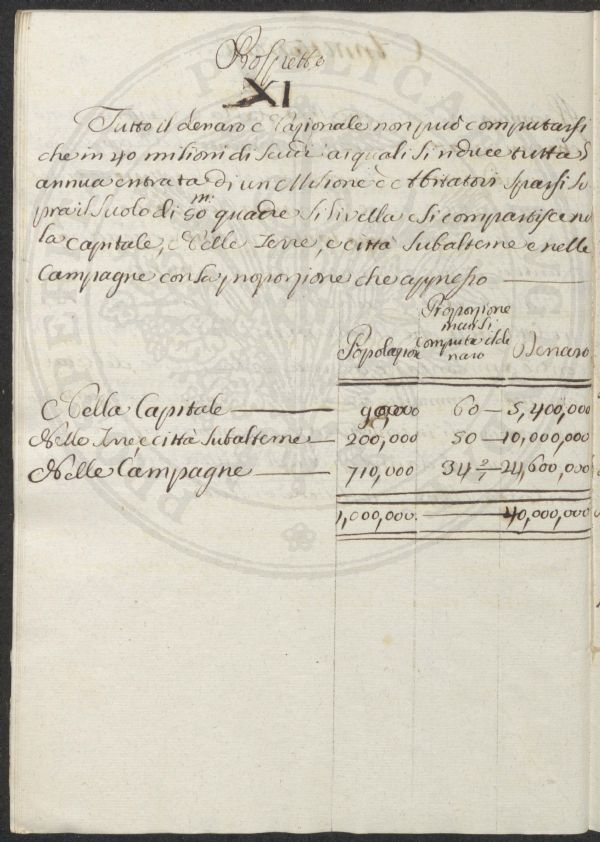 Prospetto
XI
Tutto il denaro Nazionale non può computarsi
che in 40 milioni di scudi ai quali si riduce tutta
annua entrata di un Milione Abitatori sparsi so
pra il suolo di 50 m. quadre si livella e si compartisce nel
la Capitale, Nelle Terre, e città subalterne e nelle
Campagne con la proporzione che appresso
Popolazione
Proporzione
in cui si
computa il de
naro
Denaro
Nella Capitale 90,000 60 5,400,000
Nelle Terre e città subalterne 200,000 50 10,000,000
Nelle Campagne 710,000 34 24,600,000
1,000,000. 40,000,000